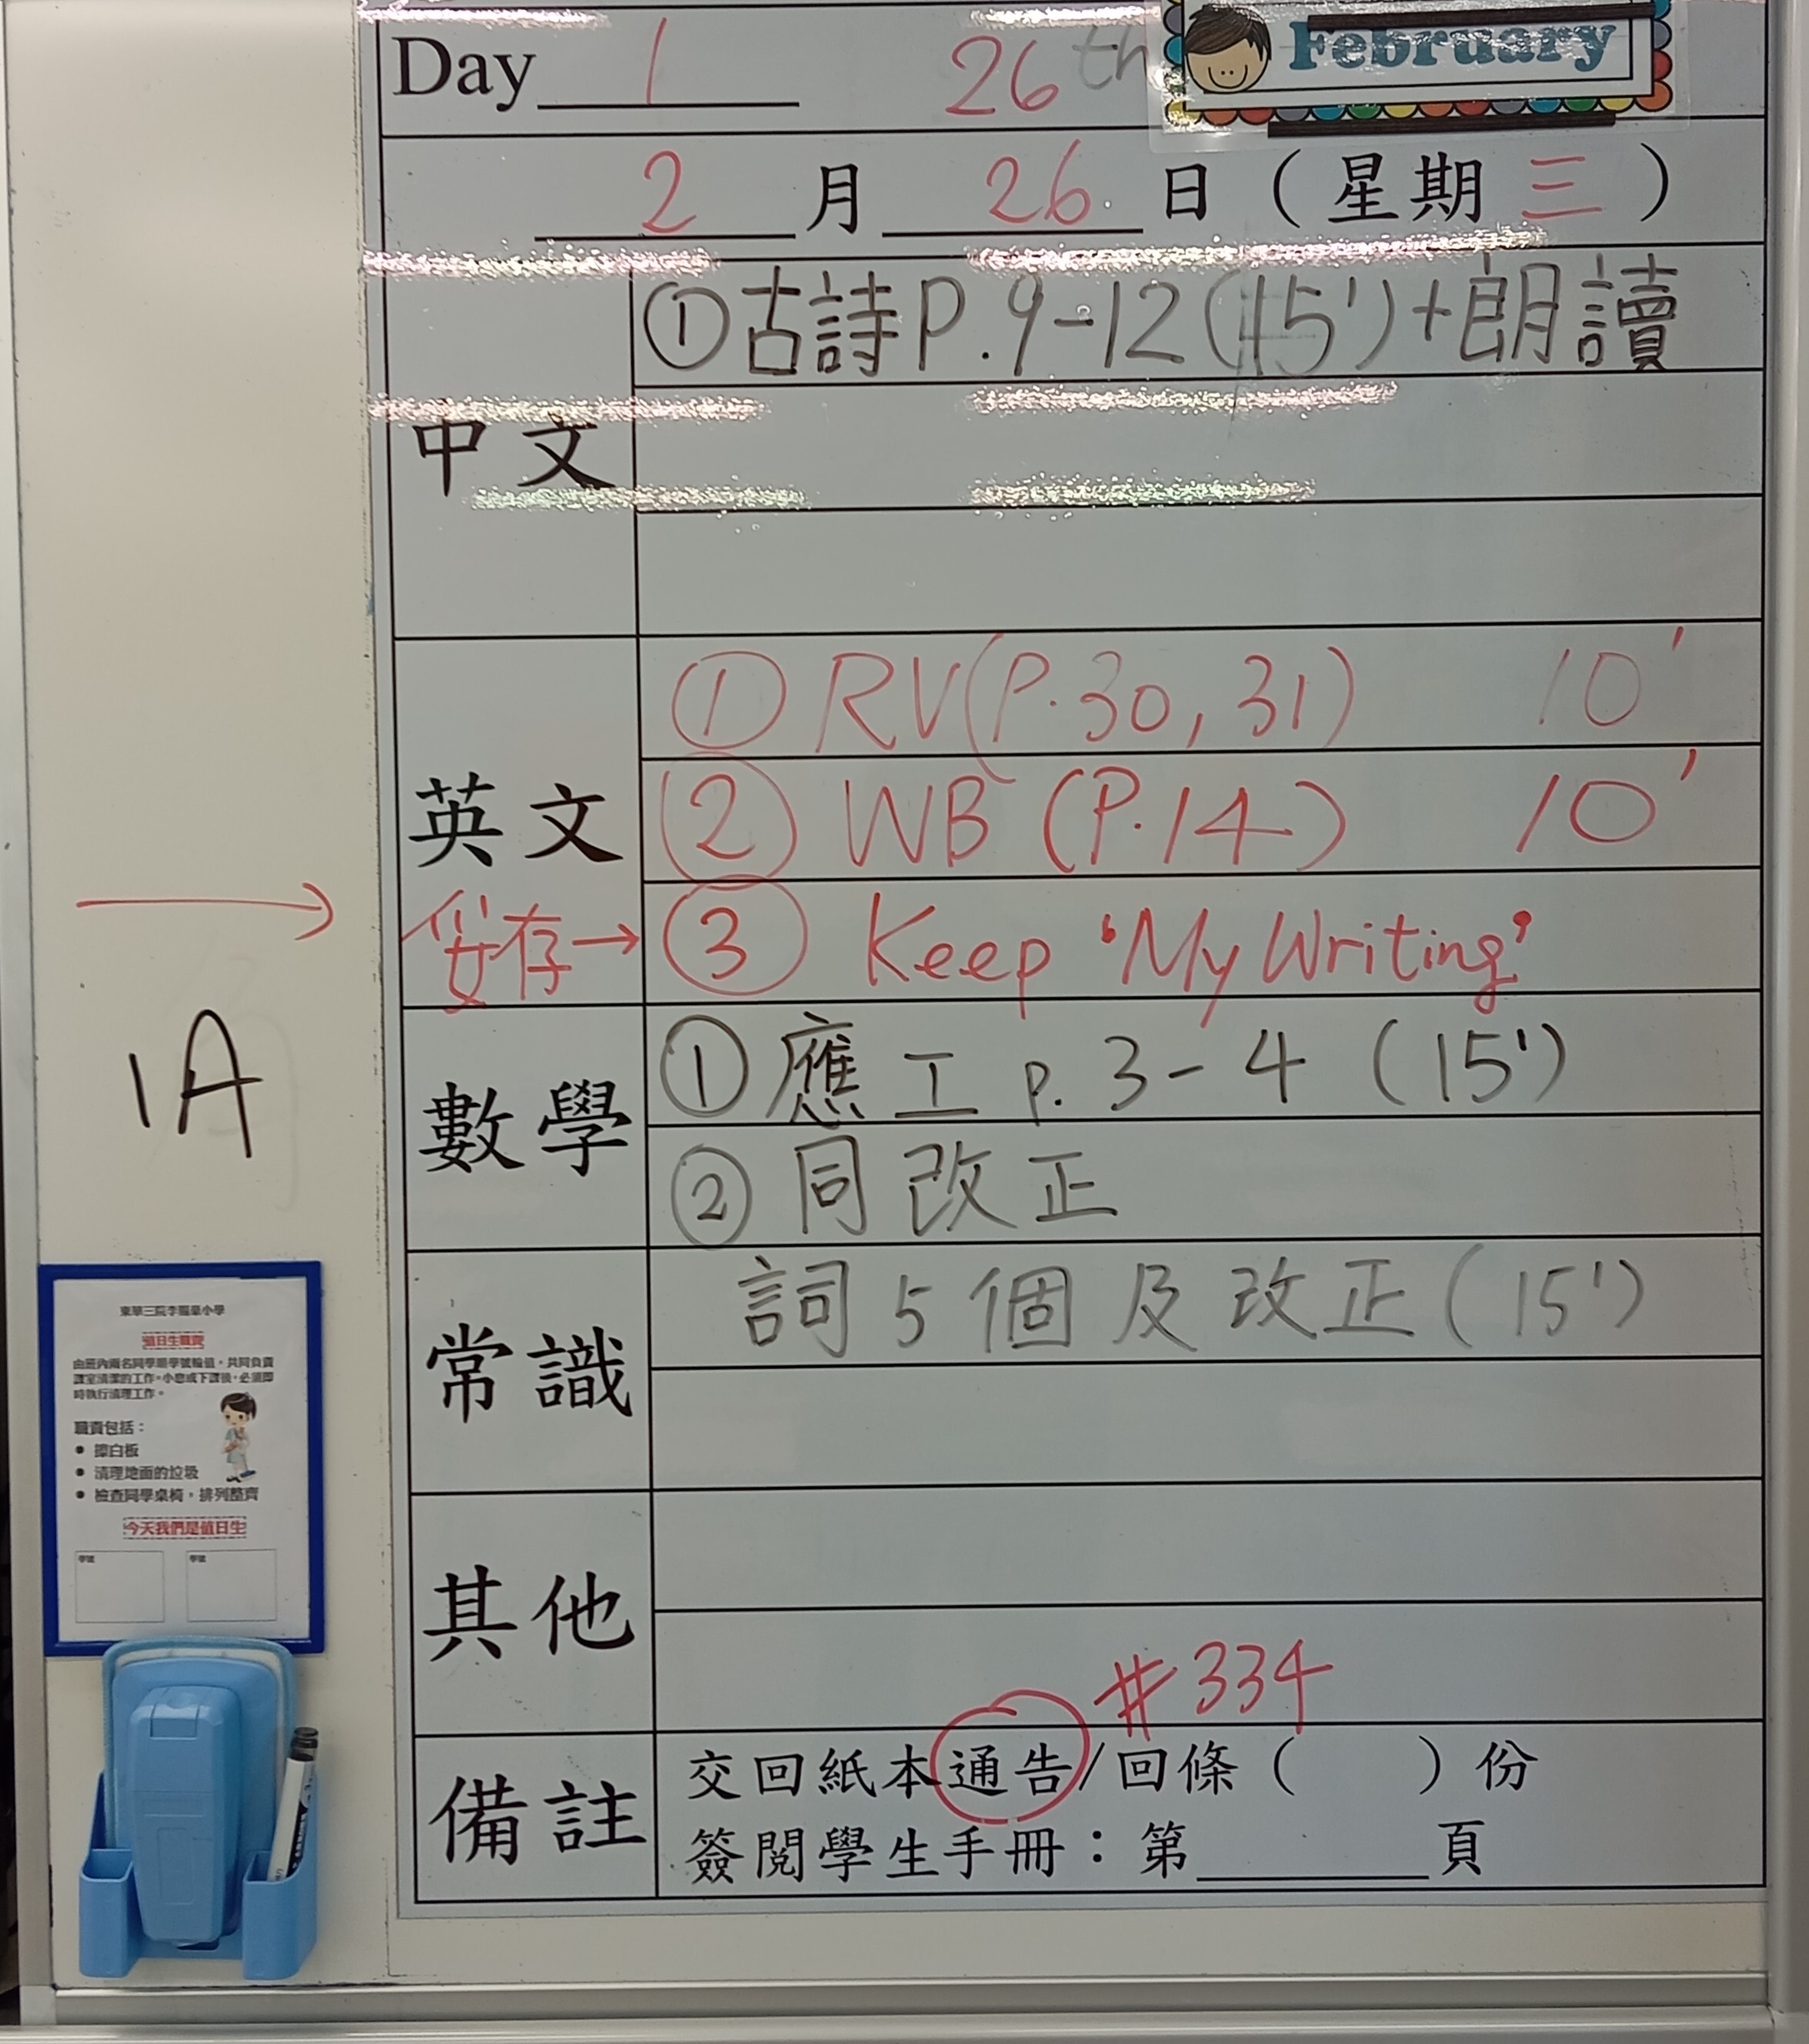 Day 1 26th February
2 月 26 日 (星期三)
中文
①古詩P.9-12(15')+朗讀
英文
①RV(P.30,31) 10'
② WB (P.14) 10'
妥存→ ③ Keep 'My Writing'
1A
數學
① 應工 p.3-4 (15')
② 同改正
常識
詞5個及改正(15')
其他
#334
備註
交回紙本通告/回條( )份
簽閱學生手冊:第 頁
東華三院李賜豪小學
值日生職責
由班內兩名同學順學號輪值,共同負責
課室清潔的工作。小息或下課後,必須即
時執行清理工作。
職責包括:
● 擦白板
● 清理地面的垃圾
● 檢查同學桌椅,排列整齊
今天我們是值日生
學號 學號